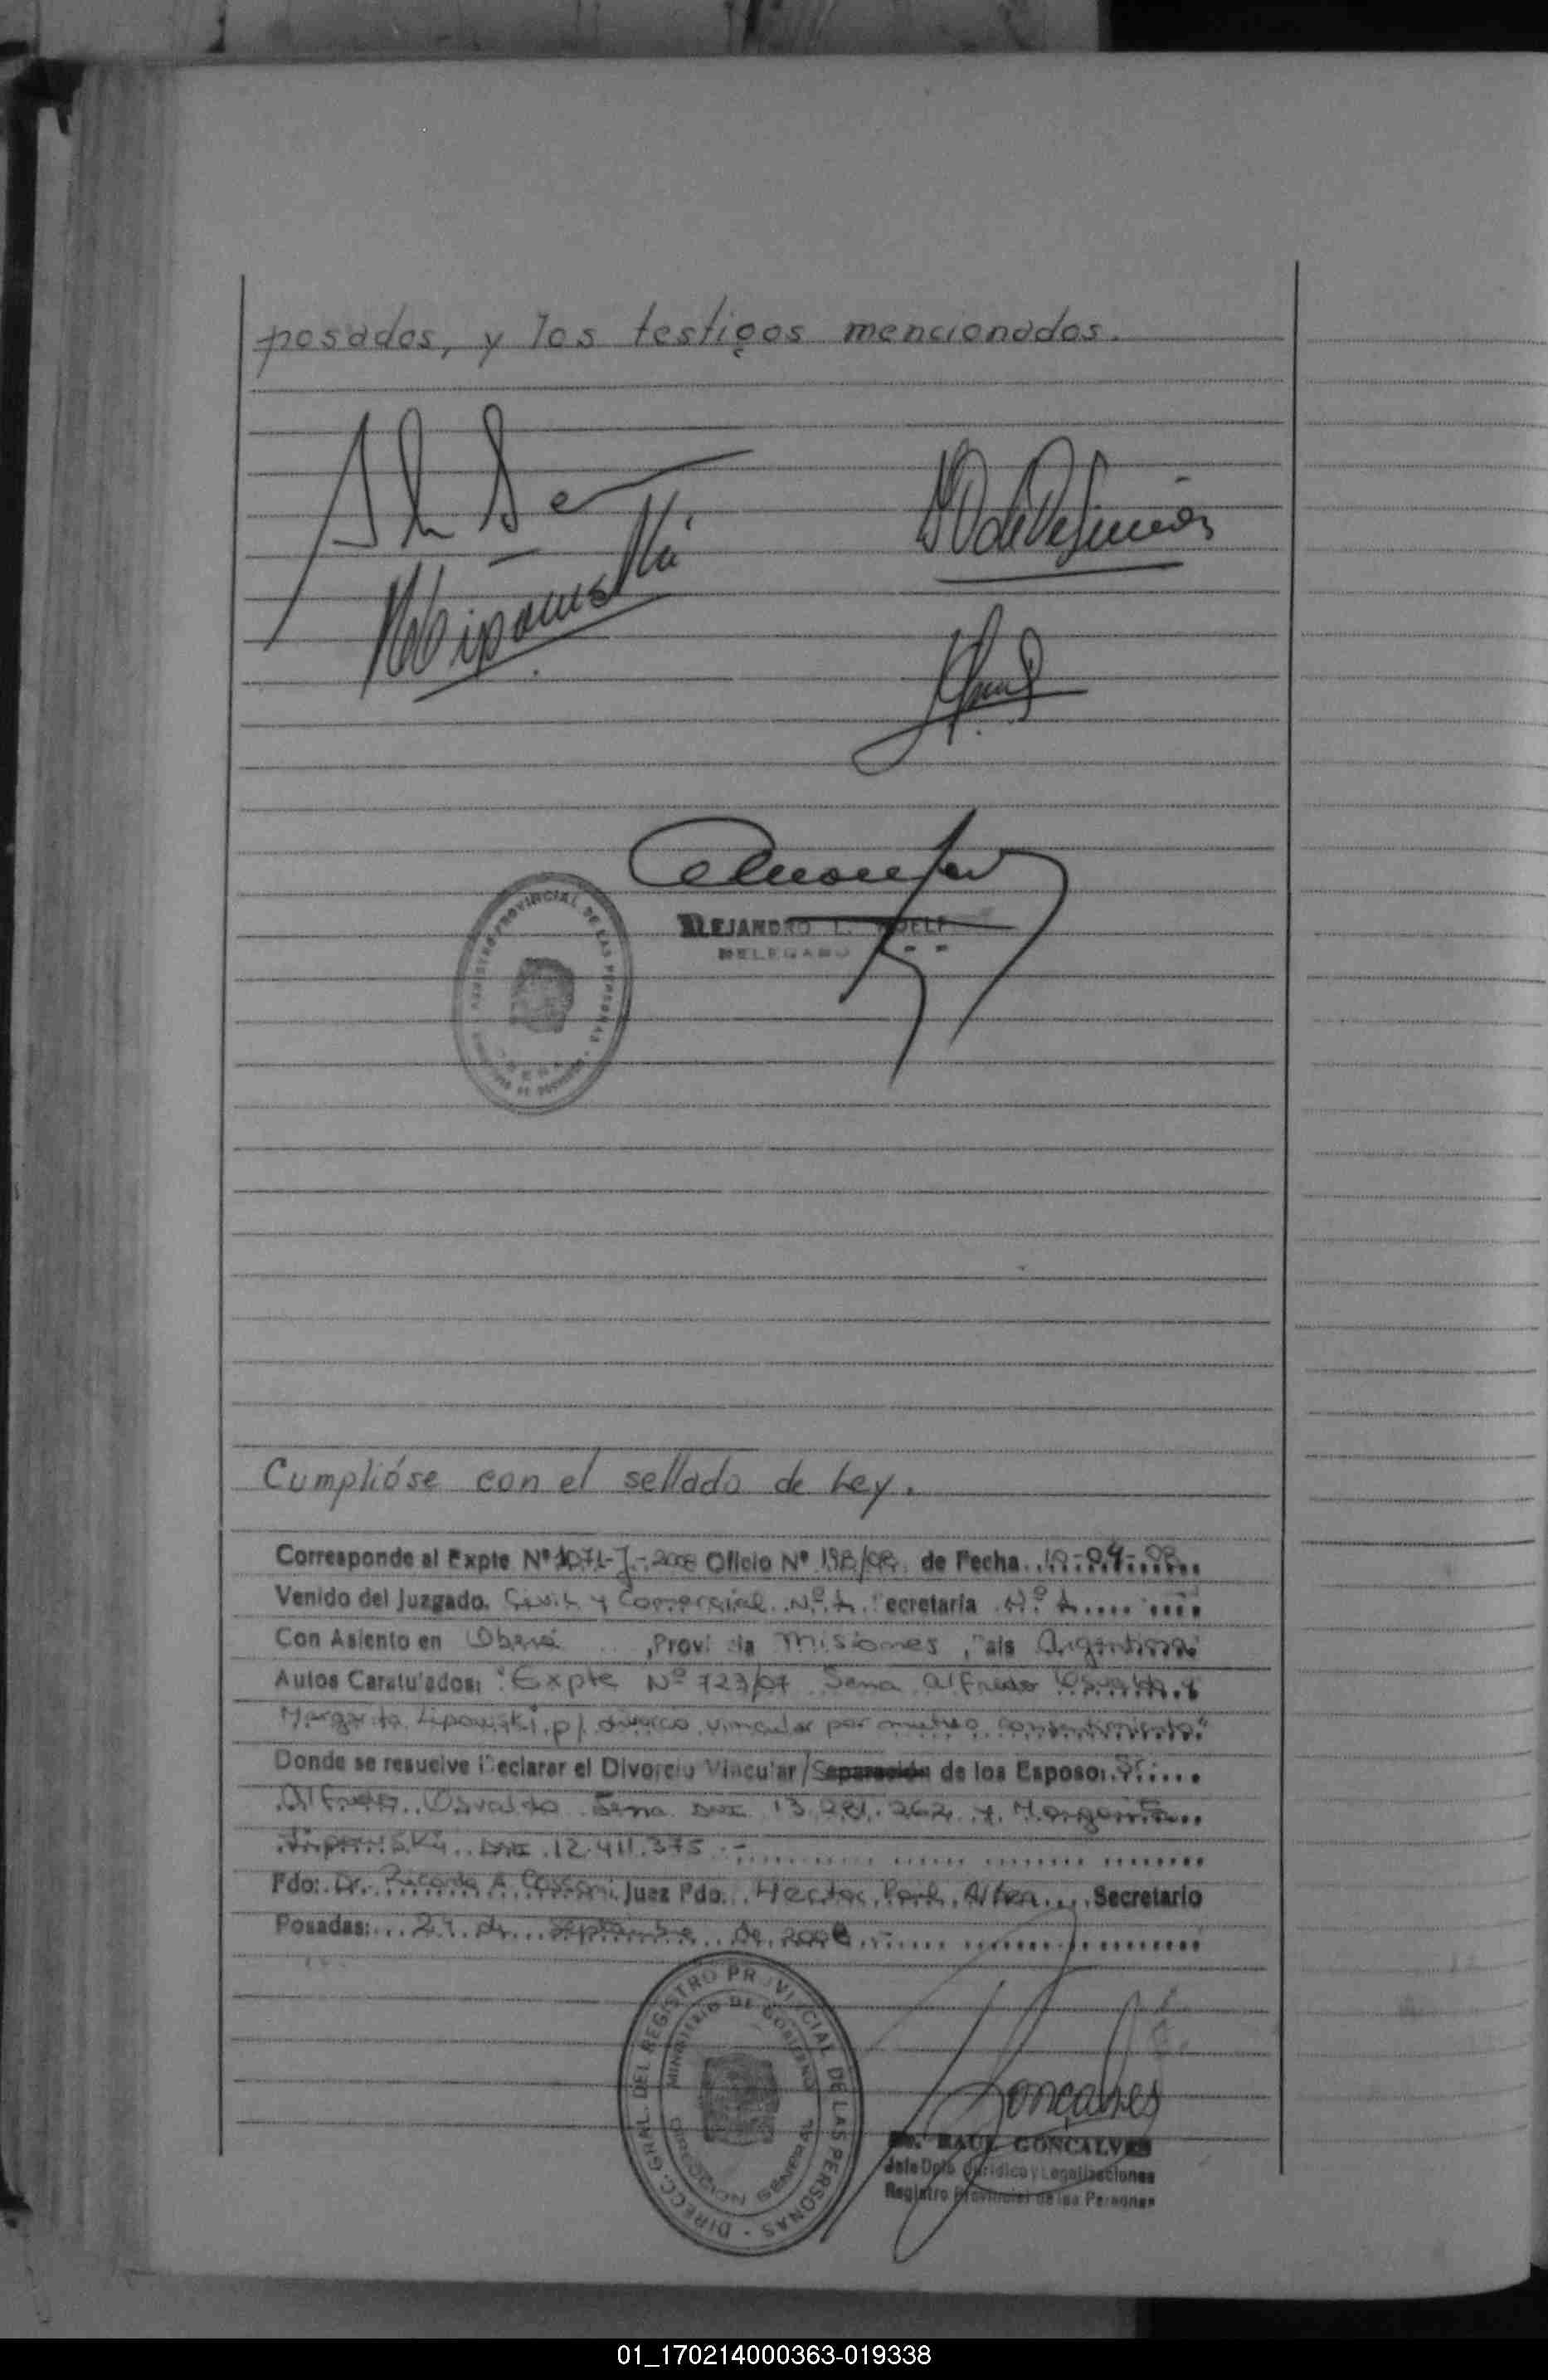 posados, y los testigos mencionados.
ALEJANDRO L.
DELEGADO
REGISTRO PROVINCIAL DE LAS PERSONAS
Cumplióse con el sellado de Ley.
Corresponde al Expte Nº 1071-J-2008 Oficio Nº 198/08 de Fecha
Venido del Juzgado. Civil y Comercial Nº 1 Secretaria Nº 1
Con Asiento en Oberá, Provincia Misiones, País Argentina
Autos Caratulados: "Expte Nº 723/07 Sena Alfredo Osvaldo y
Margarita Lipowski p/ divorcio vincular por mutuo consentimiento"
Donde se resuelve Declarar el Divorcio Vincular/Separación de los Esposos: Sr.
Alfredo Osvaldo Sena DNI 13.281.262 y Margarita
Lipowski DNI 12.411.375
Fdo: Dr. Ricardo A. Juez Fdo. Hector Secretario
Posadas: 24 de Septiembre de 2008
DIRECC. GRAL. DEL REGISTRO PROVINCIAL DE LAS PERSONAS
MINISTERIO DE GOBIERNO
DIRECCION GENERAL
Goncalves
Dr. RAUL GONCALVES
Jefe Dpto. Jurídico y Legalizaciones
Registro Provincial de las Personas
01_170214000363-019338